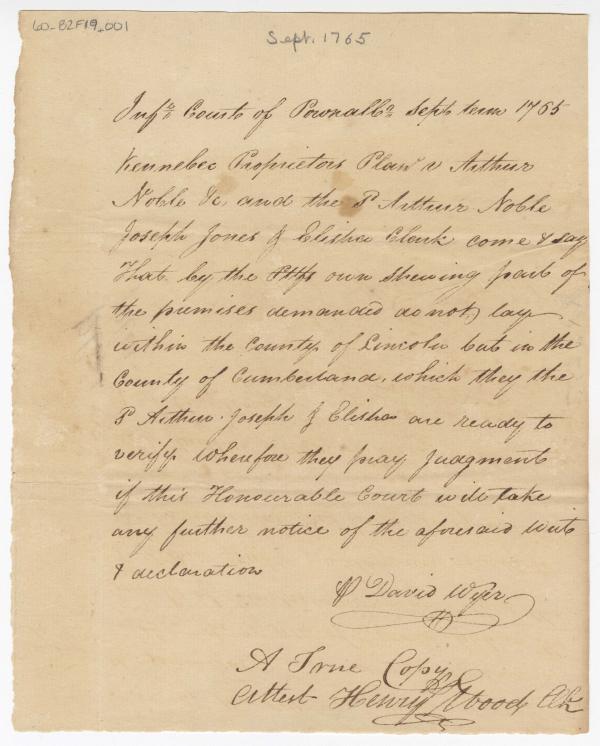 60-B2F19-001
Sept. 1765
Infr Court of Pownallbo Sept term 1765
Kennebec Proprietors Plant v Arthur
Noble &c and the Sd Arthur Noble
Joseph Jones & Elisha Clark come & say
that by the Pttfs own shewing part of
the premises demanded do not lay
within the County of Lincoln but in the
County of Cumberland, which they the
Sd Arthur Joseph & Elisha are ready to
verify wherefore they pray judgment
if this Honourable Court will take
any further notice of the aforesaid writ
& declaration
P David Wyer
A True Copy
Attest Henry Wood